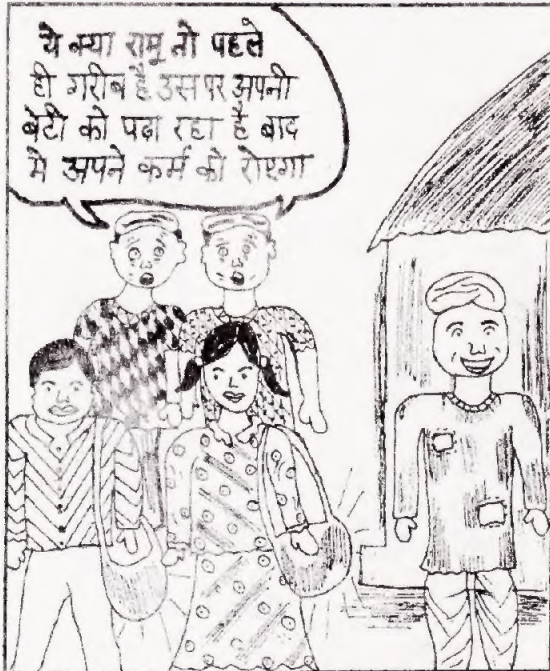 ये क्या रामू तो पहले
ही गरीब है उस पर अपनी
बेटी को पढ़ा रहा है बाद
मे अपने कर्म को रोएगा